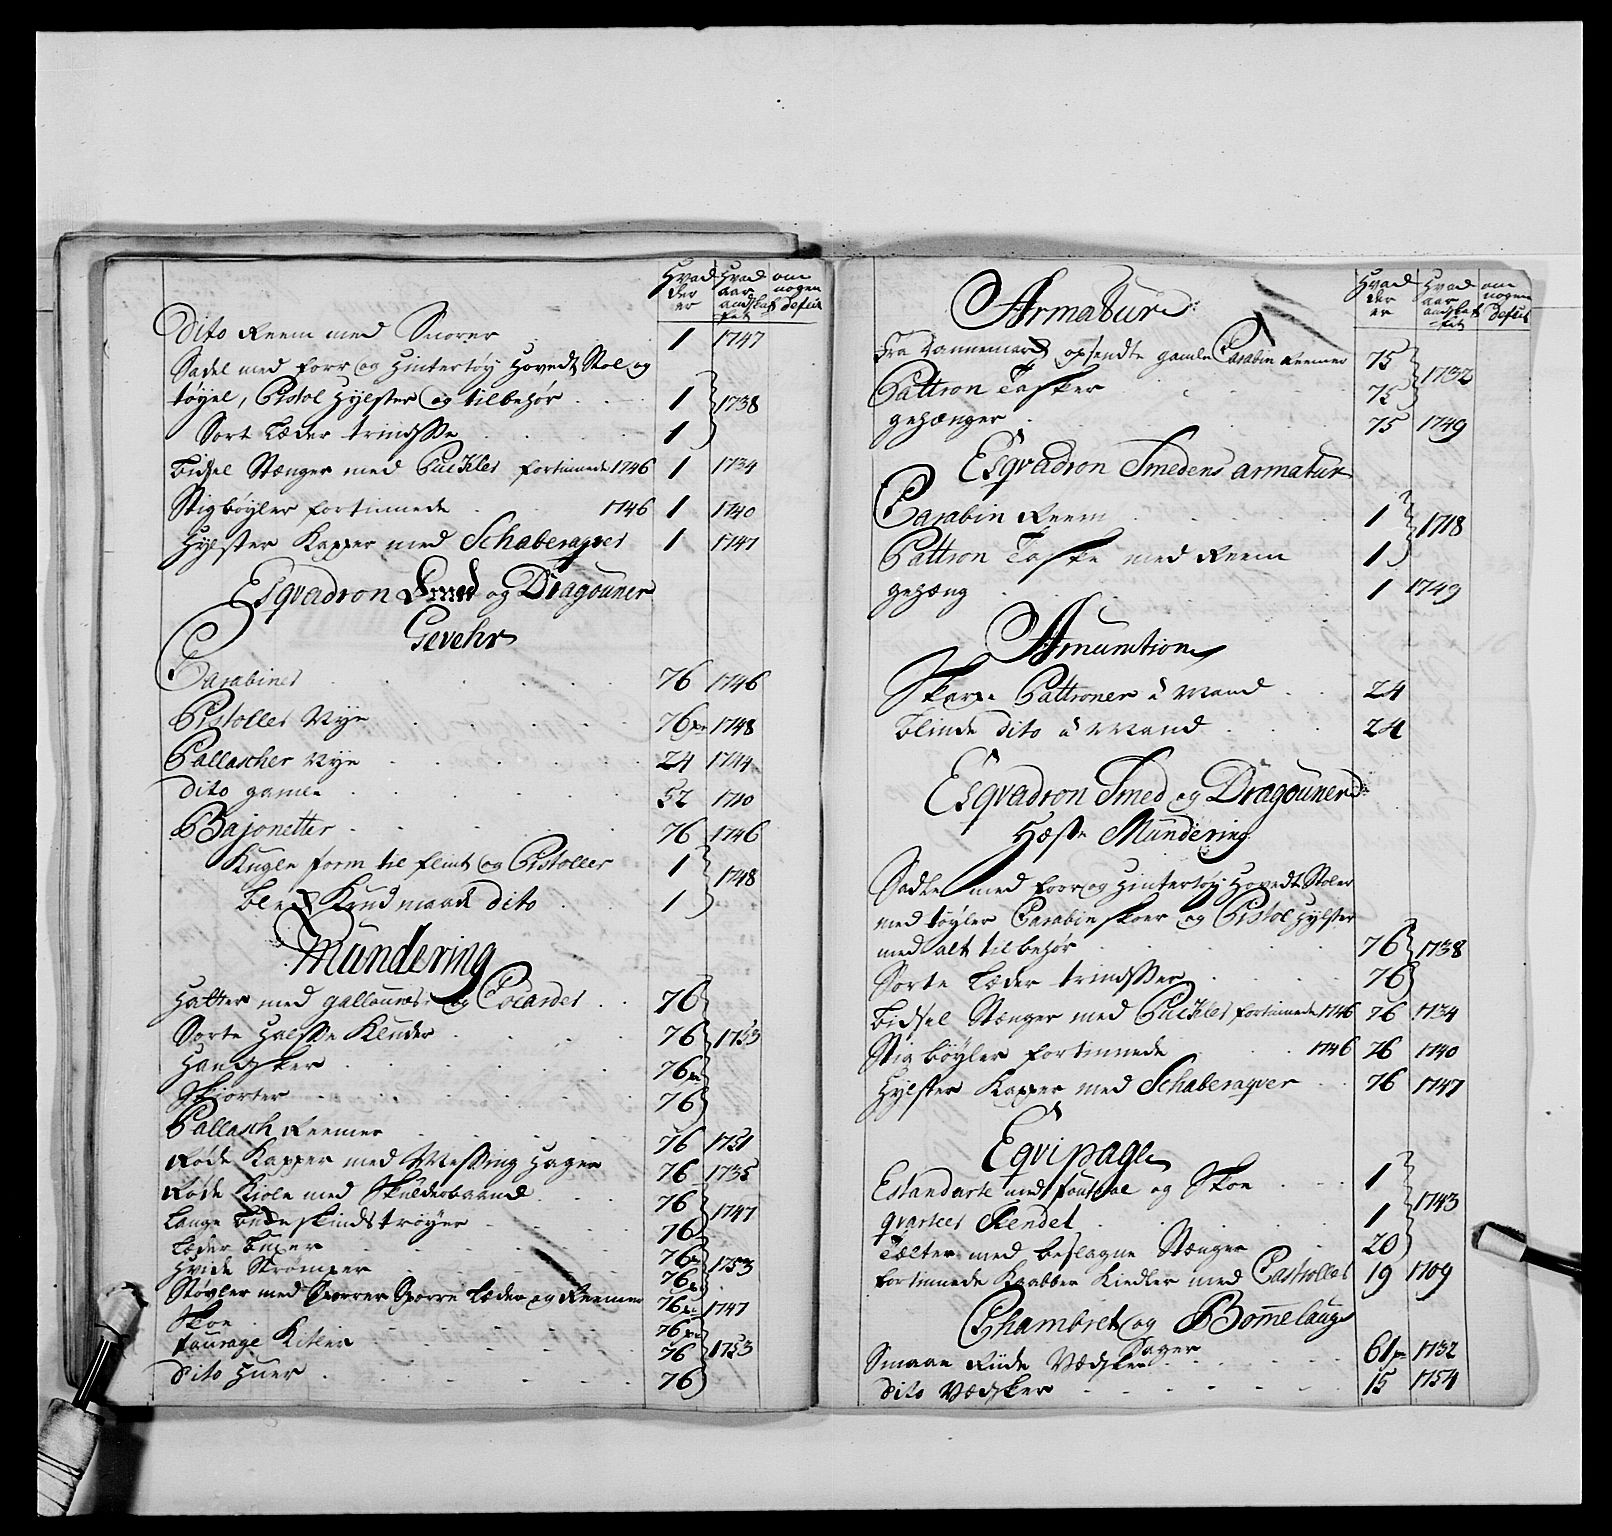 Hvad der er
Hvad aar anskaffet
om nogen defect
Dito Reem med Snorer 1 1747
Sadel med forr og Hintertøy Hovedt Stol og
tøyel, Pistol Hylster og tilbehør 1 1738
Sort Læder trindsse 1
Bidsel Stænger med Puckler fortinnede 1746 1 1734
Stigbøyler fortinnede 1746 1 1740
Hylster Kapper med Schaberaqves 1 1747
Esqvadron Smed og Dragouner
Gevehr
Carabiner 76 1746
Pistoller Nye 76 pr 1748
Pallascher Nye 24 1744
dito gamle 52 1710
Bajonetter 76 1746
Kugle form til flint og Pistoller 1 1748
dito 1
Mundering
Hatter med gallouner og Cocarder 76
Sorte Halsse Kluder 76 1753
Handsker 76 pr
Skiorter 76
Pallasch Reemer 76 1751
Røde Kapper med Messing Hager 76 1735
Røde Kiole med Skulderbaand 76 1747
Lange Bukeskinds trøyer 76
Læder Buxer 76 pr
Hvide Strømper 76 pr 1753
Støvler med Sporrer Sporre Læder og Reemer 76 pr 1747
Skoe 76 pr
fourage Kitler 76 1753
dito Huer 76
Hvad der er
Hvad aar anskaffet
om nogen defect
Armatur
Fra Dannemark opsendte gamle Carabin Reemer 75 1732
Pattron Tasker 75
gehænger 75 1749
Esqvadron Smedens armatur
Carabin Reem 1 1718
Pattron Taske med Reem 1
gehæng 1 1749
Amunition
Skarpe Pattroner à Mand 24
Blinde dito à Mand 24
Esqvadron Smed og Dragouner
Hæste Mundering
Sadle med forr og Hintertøy Hovedt Stoler
med tøyler Carabin Skoer og Pistol Hylster
med alt tilbehør 76 1738
Sorte Læder trindsser 76
Bidsel Stænger med Puckler fortinnede 1746 76 1734
Stigbøyler fortinnede 1746 76 1740
Hylster Kapper med Schaberaqver 76 1747
Eqvipage
Estandarte med fouteral og Skoe 1 1743
qvarteer 1
Tælter med beslagne Stænger 20
fortinnede Kaabber Kiedler med Castroller 19 1709
Chambret og Bomelaug
Sager
Smaae Riide Vædsker 61 pr 1732
dito Vædsker 15 1754